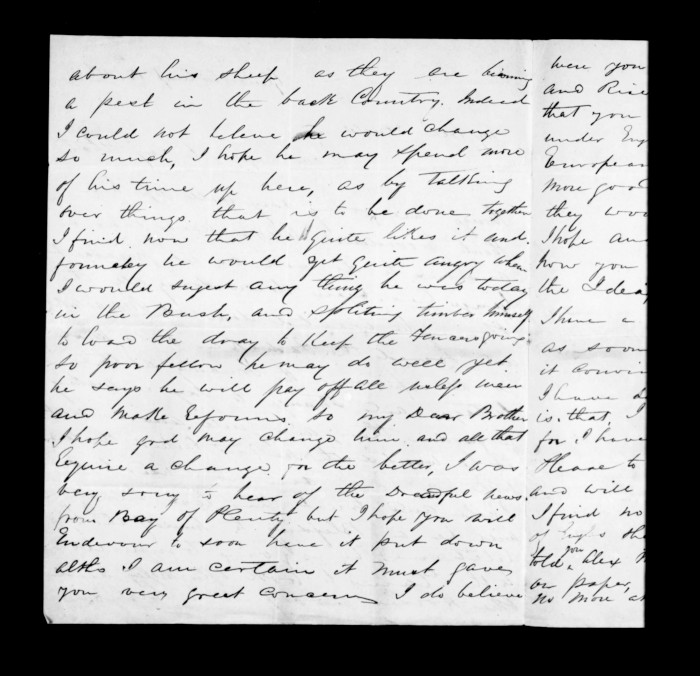 about his sheep as they are
a pest in the back Country. Indeed
I could not beleve he would change
so much, I hope he may spend more
of his time up here, as by talking
over things that is to be done together
I find now that he quite likes it and
he would get quite angry when
I would sugest any thing he was today
in the Bush, and spliting timber himself
to load the dray to Keep the going
so poor fellow he may do well yet
he says he will pay off all useless men
and make so my Dear Brother
I hope god may change him, and all that
Equire a change for the better, I was
very sorry to hear of the Dreadful news
from Bay of Plenty but I hope you will
Endevour to soon have it put down
altho I am certain it must gave
you very great concern I do believe
were you
and
that you
under
European
more good
they
I hope
how you
the
I have a
as soon
it
I have
is that, I
for I have
to
and will
I find no
of
told you Alex
on paper,
no more